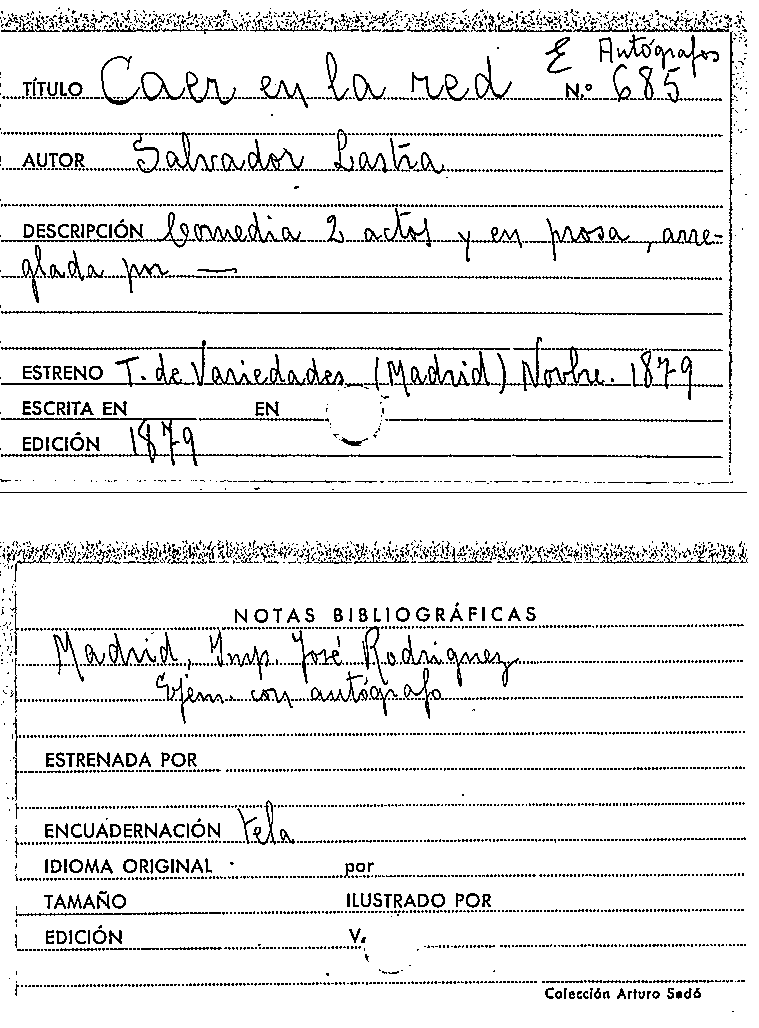 E Autógrafos
TÍTULO Caer en la red N.º 685
AUTOR Salvador Lastra
DESCRIPCIÓN Comedia 2 actos y en prosa, arre-
glada por —
ESTRENO T. de Variedades (Madrid) Novbre. 1879
ESCRITA EN EN
EDICIÓN 1879
NOTAS BIBLIOGRÁFICAS
Madrid, Imp. José Rodriguez
Ejem. con autógrafo
ESTRENADA POR
ENCUADERNACIÓN Tela
IDIOMA ORIGINAL por
TAMAÑO ILUSTRADO POR
EDICIÓN V.
Colección Arturo Sedó